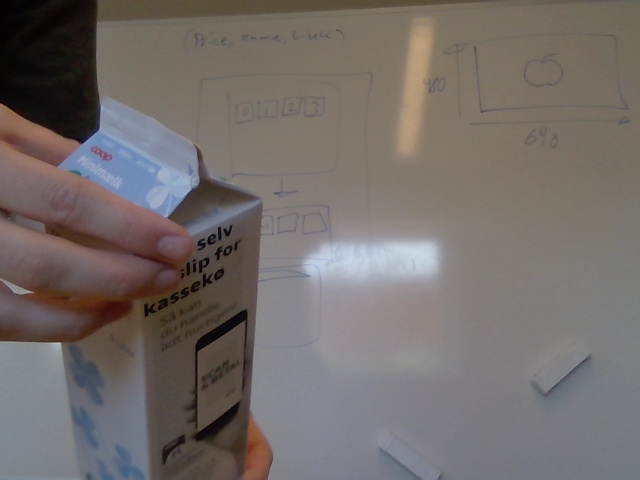 (Price, name, Link)
480
640
0 1 2 3
coop
Minimælk
selv
slip for
kassekø
Så kan
du handle
lidt hurtigere
SCAN
& BETAL